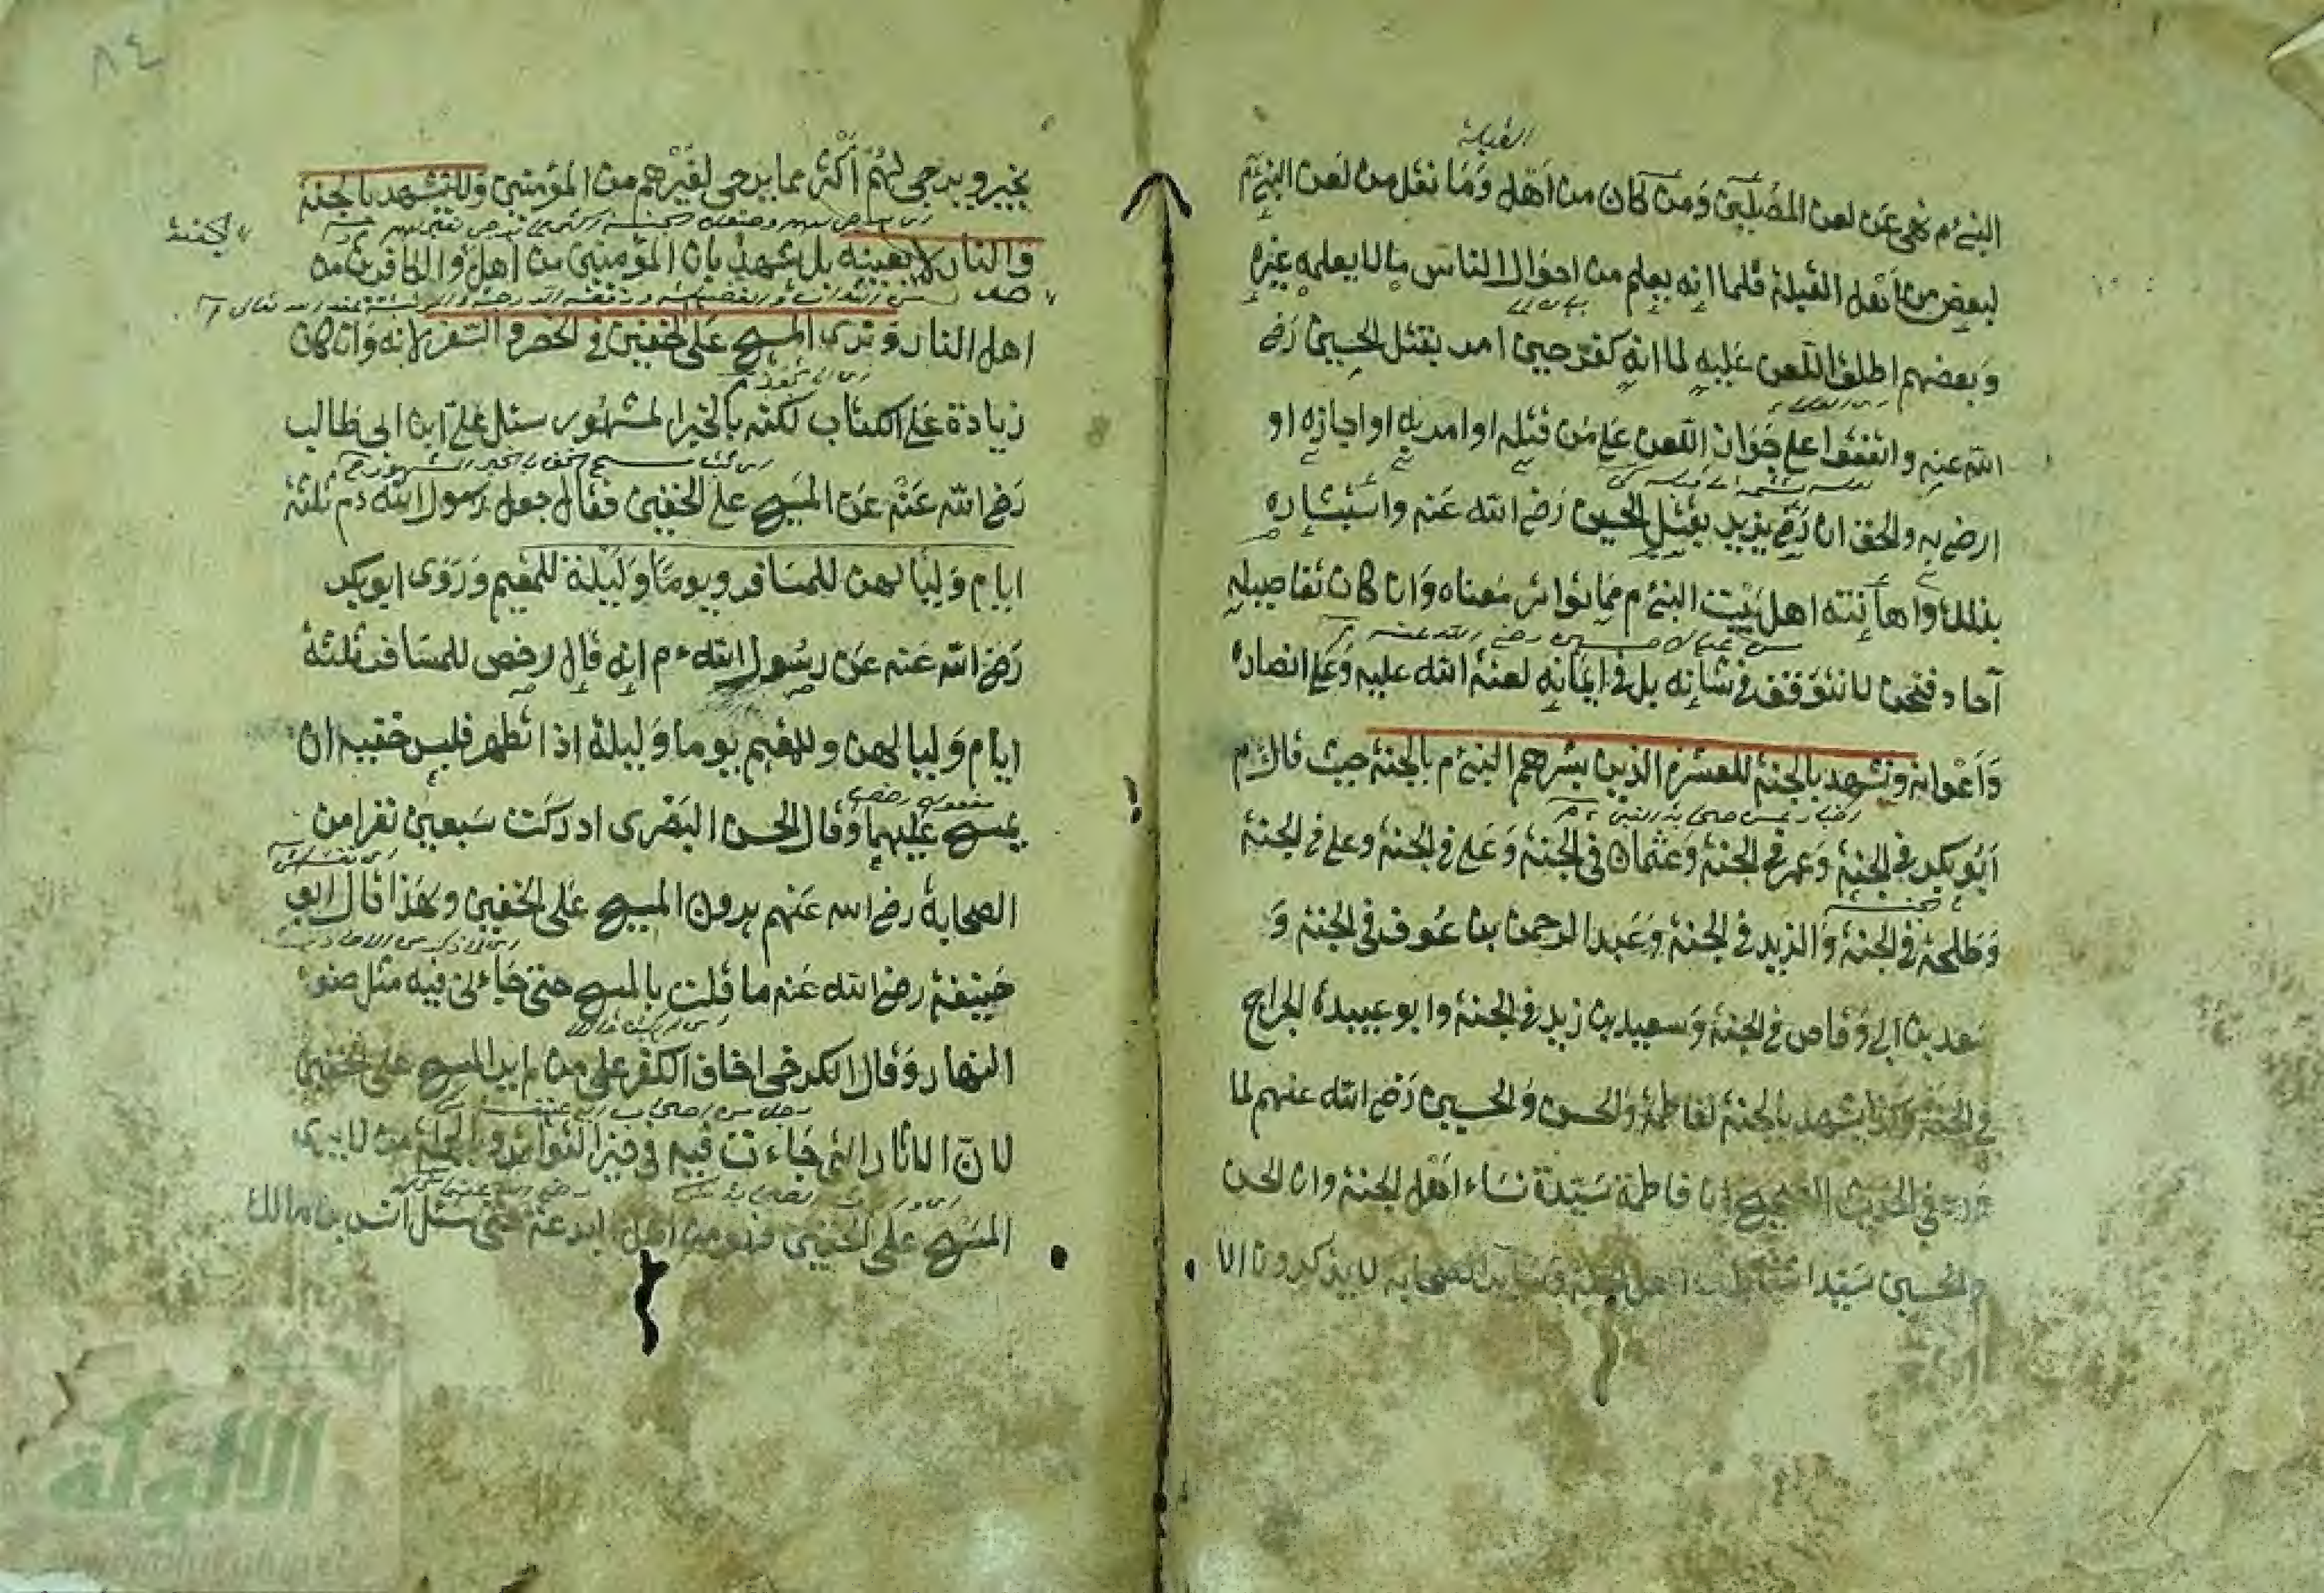 القبلة
النبي ءم نهى عن لعن المصلين ومن كان من اهل وما نقل من لعن النبي ءم
لبعض من اهل القبلة فلما انه يعلم من احوال الناس ما لا يعلمه غيره
وبعضهم اطلق اللعن عليه لما انه كفر حين امر بقتل الحسين رض
الله عنه واتفقوا على جواز اللعن على من قتله او امر به او اجازه او
ارضي به والحق ان رضي يزيد بقتل الحسين رضي الله عنه واستبشاره
بذلك واهانته اهل بيت النبي ءم مما تواتر معناه وان كان تفاصيله
آحاد فنحن لا نتوقف في شانه بل في ايمانه لعنة الله عليه وعلى انصاره
واعوانه ونشهد بالجنة للعشرة الذين بشرهم النبي ءم بالجنة حيث قال ءم
ابو بكر في الجنة وعمر في الجنة وعثمان في الجنة وعلي في الجنة وعلي في الجنة
وطلحة في الجنة والزبير في الجنة وعبد الرحمن بن عوف في الجنة و
سعد بن ابي وقاص في الجنة وسعيد بن زيد في الجنة وابو عبيدة الجراح
في الجنة وكذا يشهد بالجنة لفاطمة والحسن والحسين رضي الله عنهم لما
ورد في الحديث الصحيح ان فاطمة سيدة نساء اهل الجنة وان الحسن
والحسين سيدا شباب اهل الجنة وسائر الصحابة لا يذكرون الا
٨٤
بخير ويرجى لهم اكثر مما يرجى لغيرهم من المؤمنين ولا نشهد بالجنة
والنار لا بعينه بل نشهد بان المؤمنين من اهل والكافرين من
الجنة
اهل النار ونرى المسح على الخفين في الحضر والسفر لانه وان كان
زيادة على الكتاب لكنه بالخبر المشهور سئل علي ابن ابي طالب
رضي الله عنه عن المسح على الخفين فقال جعل رسول الله ءم ثلثة
ايام ولياليهن للمسافر ويوما وليلة للمقيم وروى ابو بكر
رضي الله عنه عن رسول الله ءم انه قال ارخص للمسافر ثلثة
ايام ولياليهن وللمقيم يوما وليلة اذا تطهر فلبس خفيه ان
يمسح عليهما وقال الحسن البصري ادركت سبعين نفرا من
الصحابة رضي الله عنهم يرون المسح على الخفين ولهذا قال ابو
حنيفة رضي الله عنه ما قلت بالمسح حتى جاءني فيه مثل ضوء
النهار وقال الكرخي اخاف الكفر على من لم ير المسح على الخفين
لان الاثار التي جاءت فيه في حيز التواتر وبالجملة من لا يرى
المسح على الخفين فهو من اهل البدعة حتى سئل انس بن مالك